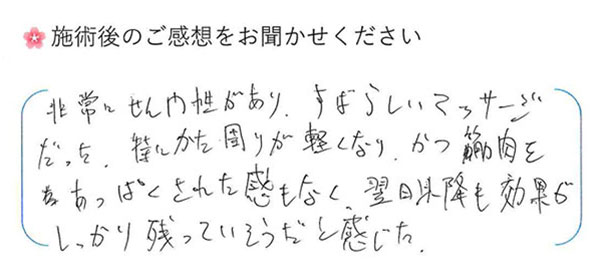 施術後のご感想をお聞かせください
非常にせん門性があり、すばらしいマッサージ
だった。特にかた周りが軽くなり、かつ筋肉を
あっぱくされた感もなく、翌日以降も効果が
しっかり残っていそうだと感じた。